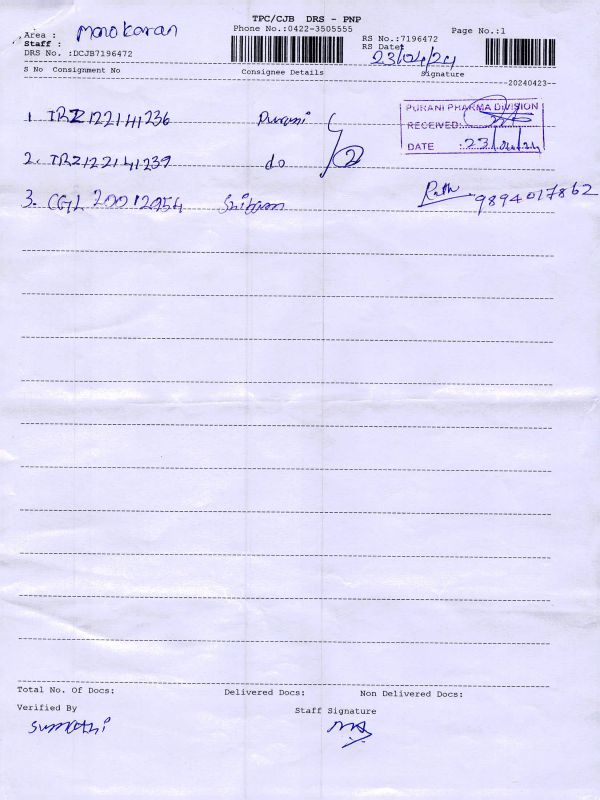 TPC/CJB DRS - PNP
Area : Manokaran
Phone No.:0422-3505555
RS No.:7196472
Page No.:1
Staff :
RS Date: 23/04/24
DRS No. :DCJB7196472
S No Consignment No
Consignee Details
Signature
20240423
1. TRZ122141236 Purani
2. TRZ122141239 do
2
3. CGL 20012954
PURANI PHARMA DIVISION
RECEIVED:
DATE : 23/04/24
9894017862
Total No. Of Docs:
Delivered Docs:
Non Delivered Docs:
Verified By
Staff Signature
Sumathi